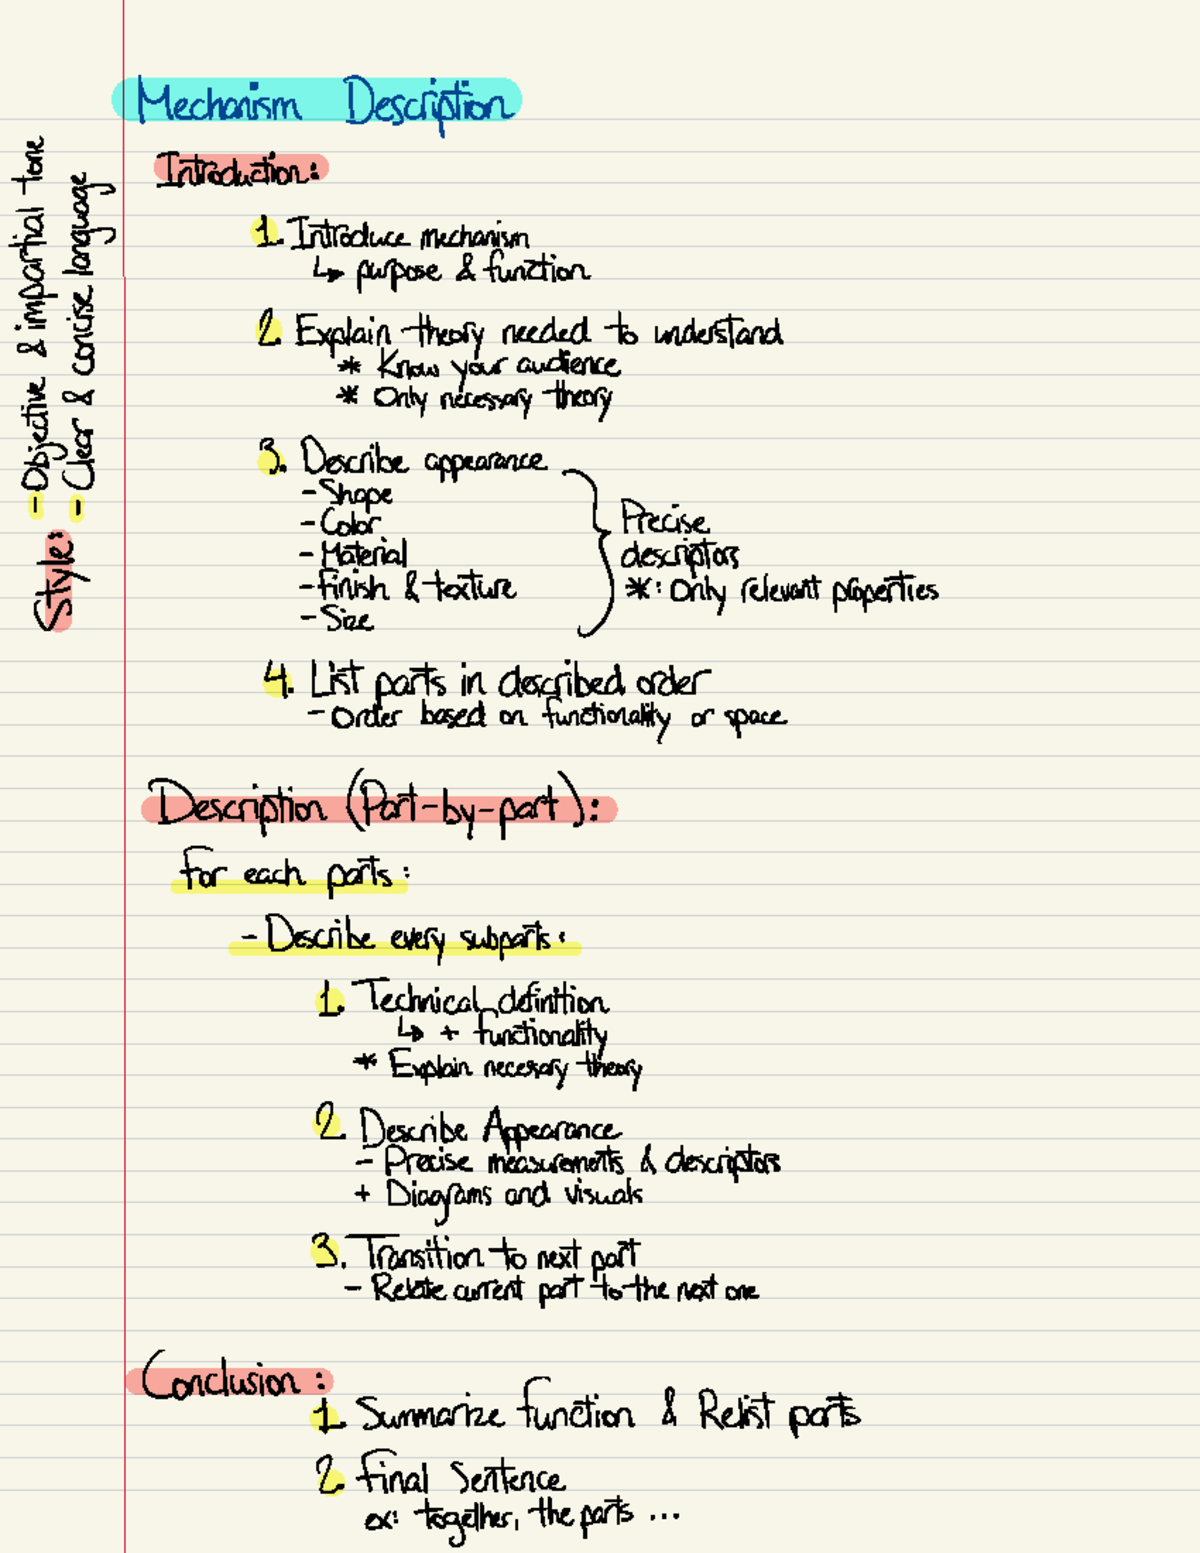 Mechanism Description
Introduction:
1. Introduce mechanism
↳ purpose & function
2. Explain theory needed to understand
* Know your audience
* Only necessary theory
3. Describe appearance
- Shape
- Color
- Material
- Finish & texture
- Size
Precise
descriptors
*: Only relevant properties
4. List parts in described order
- Order based on functionality or space
Style:
- Objective & impartial tone
- Clear & concise language
Description (Part-by-part):
For each parts:
- Describe every subparts:
1. Technical definition
↳ + functionality
* Explain necesary theory
2. Describe Appearance
- Precise measurements & descriptors
+ Diagrams and visuals
3. Transition to next part
- Relate current part to the next one
Conclusion:
1. Summarize function & Relist parts
2. Final Sentence
ex: together, the parts ...